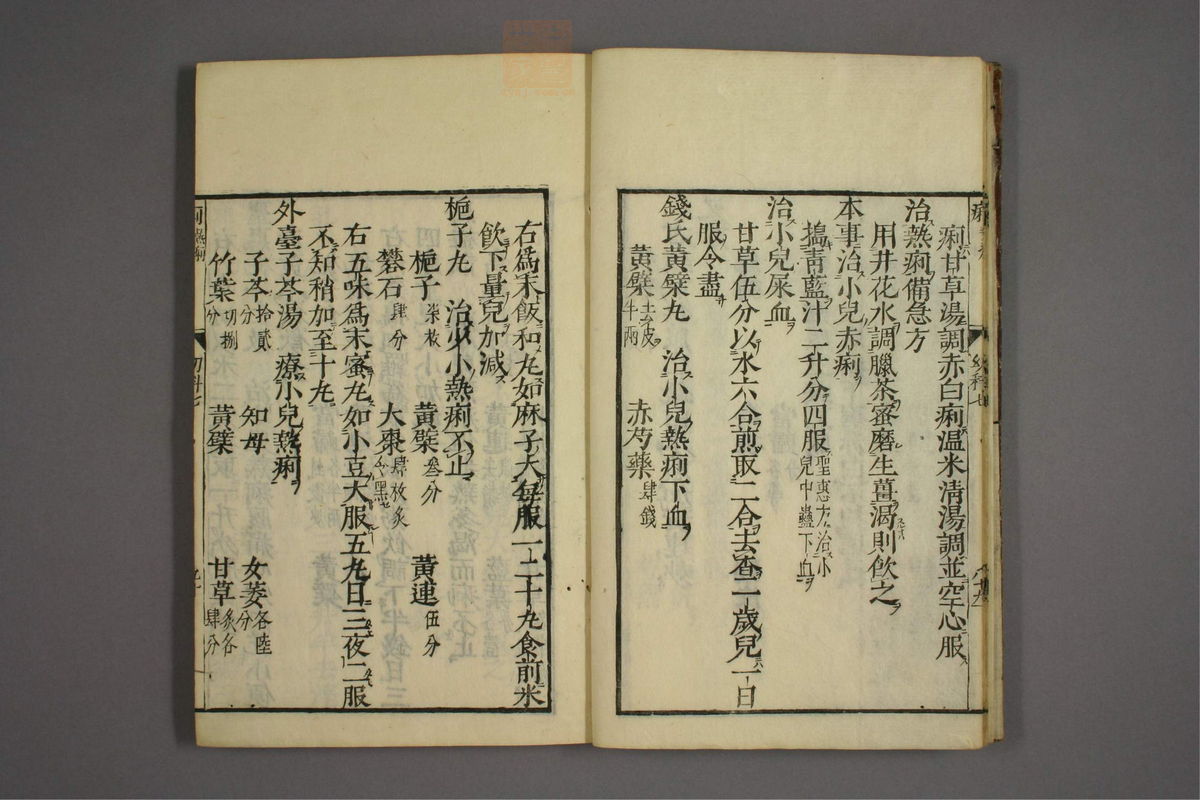 痢甘草湯調赤白痢温米清湯調並空心服
治熱痢備急方
用井花水調臘茶蜜磨生薑渴則飲之
本事治小兒赤痢
搗青藍汁二升分四服聖惠方治小兒中蠱下血
治小兒屎血
甘草伍分以水六合煎取二合去査一歲兒一日
服令盡
錢氏黄蘗丸 治小兒熱痢下血
黄蘗去皮半兩 赤芍藥肆錢
右爲末飯和丸如麻子大每服一二十丸食前米
飲下量兒加減
梔子丸 治少小熱痢不止
梔子柒枚 黄蘗叁分 黄連伍分
礬石肆分 大棗肆枚炙令黑
右五味爲末蜜丸如小豆大服五丸日三夜二服
不知稍加至十丸
外臺子芩湯 療小兒熱痢
子芩拾貳分 知母 女萎各陸分
竹葉切捌分 黄蘗 甘草炙各肆分